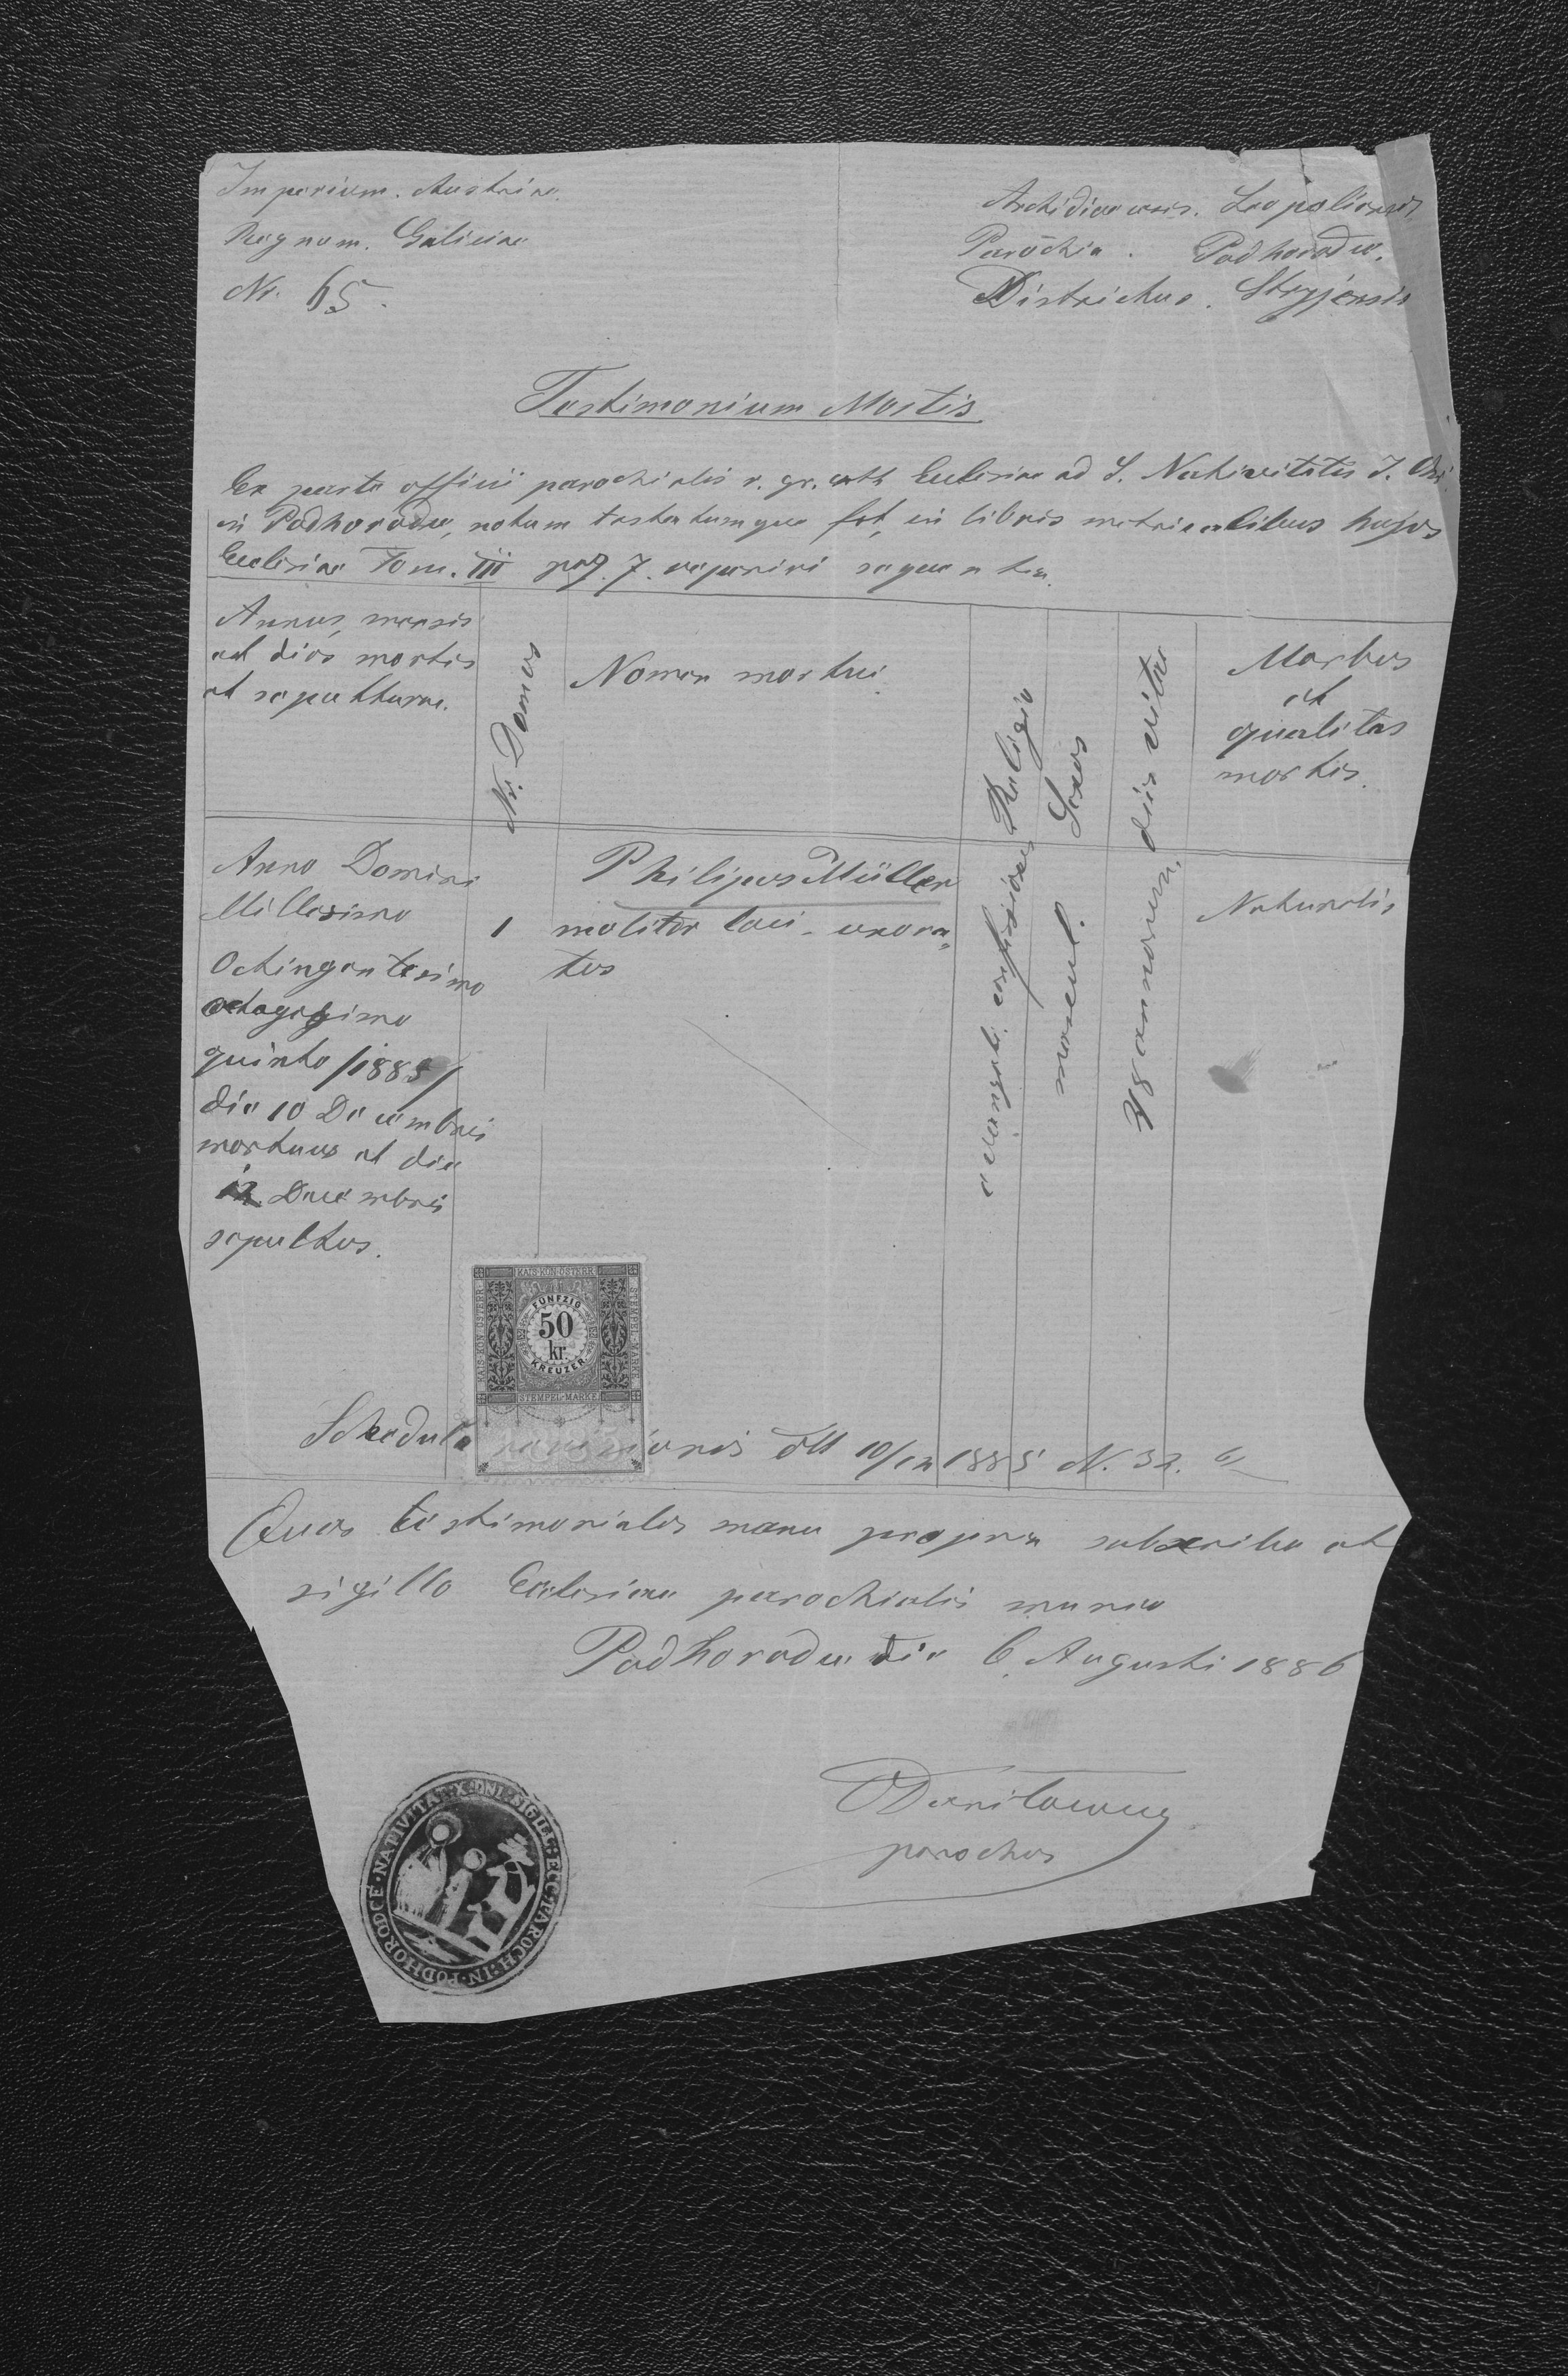 Imperium. Austriae.
Regnum. Galiciae
Nr. 65.
Archidioecesis. Leopoliensis
Parochia. Podhorodce.
Districtus. Stryjensis
Testimonium Mortis
Ex parte officii parochialis r. gr. cath Ecclesiae ad S. Nativitatis J. Chri
in Podhorodce, notum testatumque fit, in libris metricalibus hujus
Ecclesiae Tom. III pag. 7. reperiri sequentia.
Annus, mensis
et dies mortis
et sepulturae.
Nr. Domus
Nomen mortui
Religio
Sexus
dies vitae
Morbus
et
qualitas
mortis.
Anno Domini
Millesimo
Octingentesimo
octogesimo
quinto /1885/
die 10 Decembris
mortuus et die
12. Decembris
sepultus.
1
Philipus Müller
molitor loci - uxora„
tus
evangeli. confessionis
mascul.
48 annorum,
Naturalis
KAIS·KÖN·ÖSTERR·
STEMPEL-MARKE
FÜNFZIG
50
kr.
KREUZER
STEMPEL-MARKE
Schedula revisionis dtt 10/12 1885 N. 32.
Quas testimoniales manu propria subscribo et
sigillo Ecclesiae parochialis munio
Podhorodce die 6. Augusti 1886
Danilowicz
parochus
NATIVITAT·X·DNI·SIGILL·ECC·PAROCH·IN·PODHORODCE·